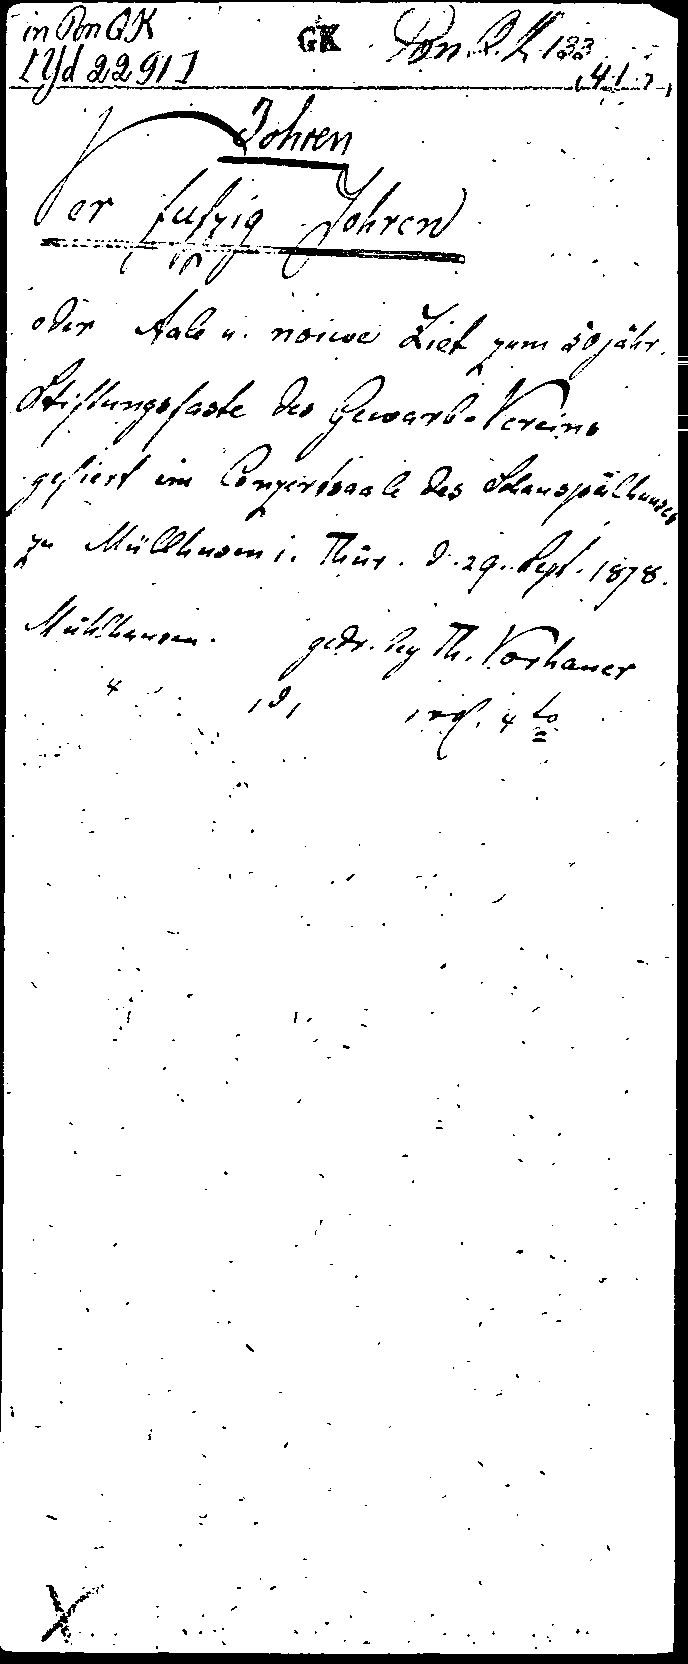 in Pon QK GK Pon. Q. K 133
[Yd 2291] ,41.
Johren
Vor fufzig Johren
oder Aale u. noiwe Ziet zum 50jähr.
Stiftungsfeste des Gewerb-Vereins
gefiert im Conzertsaale des Schauspälhuses
zu Müllhusen i. Thür. d. 29. Sept. 1878.
Mühlhausen. gedr. bey Th. Vorhauer
4to